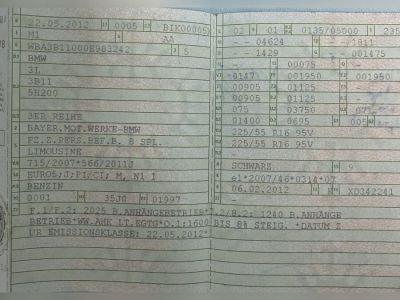 22.05.2012 0005 BIK00005
M1 AA
WBA3B11000E983242 5
BMW
3L
3B11
5H200
3ER REIHE
BAYER.MOT.WERKE-BMW
FZ.Z.PERS.BEF.B. 8 SPL.
LIMOUSINE
715/2007*566/2011J
EURO5;J;PI/CI; M, N1 I
BENZIN
0001 35J0 01997
02 01 0135/05000 235
- - 04624 - - 1811
- - 1429 - - 001475
- 00075 - -
0147 001950 001950
00905 01125
00905 01125
075 03750 071
01400 0695 005
225/55 R16 95V
225/55 R16 95V
SCHWARZ 9
e1*2007/46*0314*07
06.02.2012 XD342241
F.1/F.2: 2025 B.ANHÄNGEBETRIEB*7.2/8.2: 1240 B.ANHÄNGE
BETRIEB*WW.AHK LT.EGTG*O.1:1600 BIS 8% STEIG. *DATUM Z
UR EMISSIONSKLASSE: 22.05.2012*